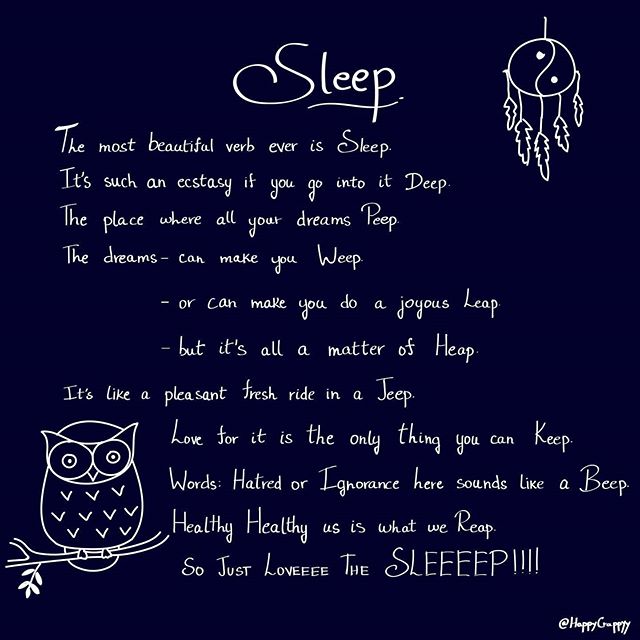 Sleep.
The most beautiful verb ever is Sleep.
It's such an ecstasy if you go into it Deep.
The place where all your dreams Peep.
The dreams - can make you Weep.
- or can make you do a joyous Leap.
- but it's all a matter of Heap.
It's like a pleasant fresh ride in a Jeep.
Love for it is the only thing you can Keep.
Words: Hatred or Ignorance here sounds like a Beep.
Healthy Healthy us is what we Reap.
So Just Loveeee The SLEEEEP!!!!